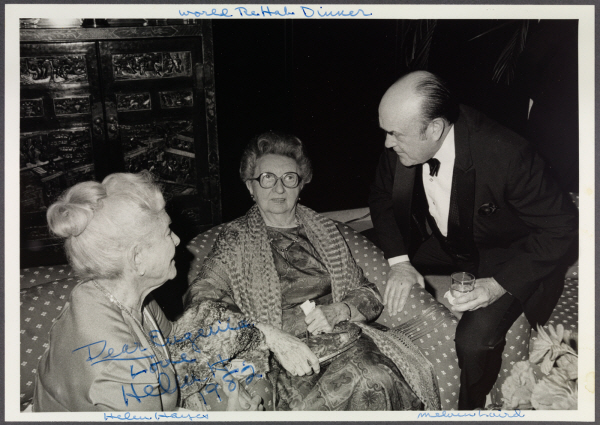 World ReHab Dinner
Dear Eugenia
Love
Helen H
1982
Helen Hayes
Melvin Laird